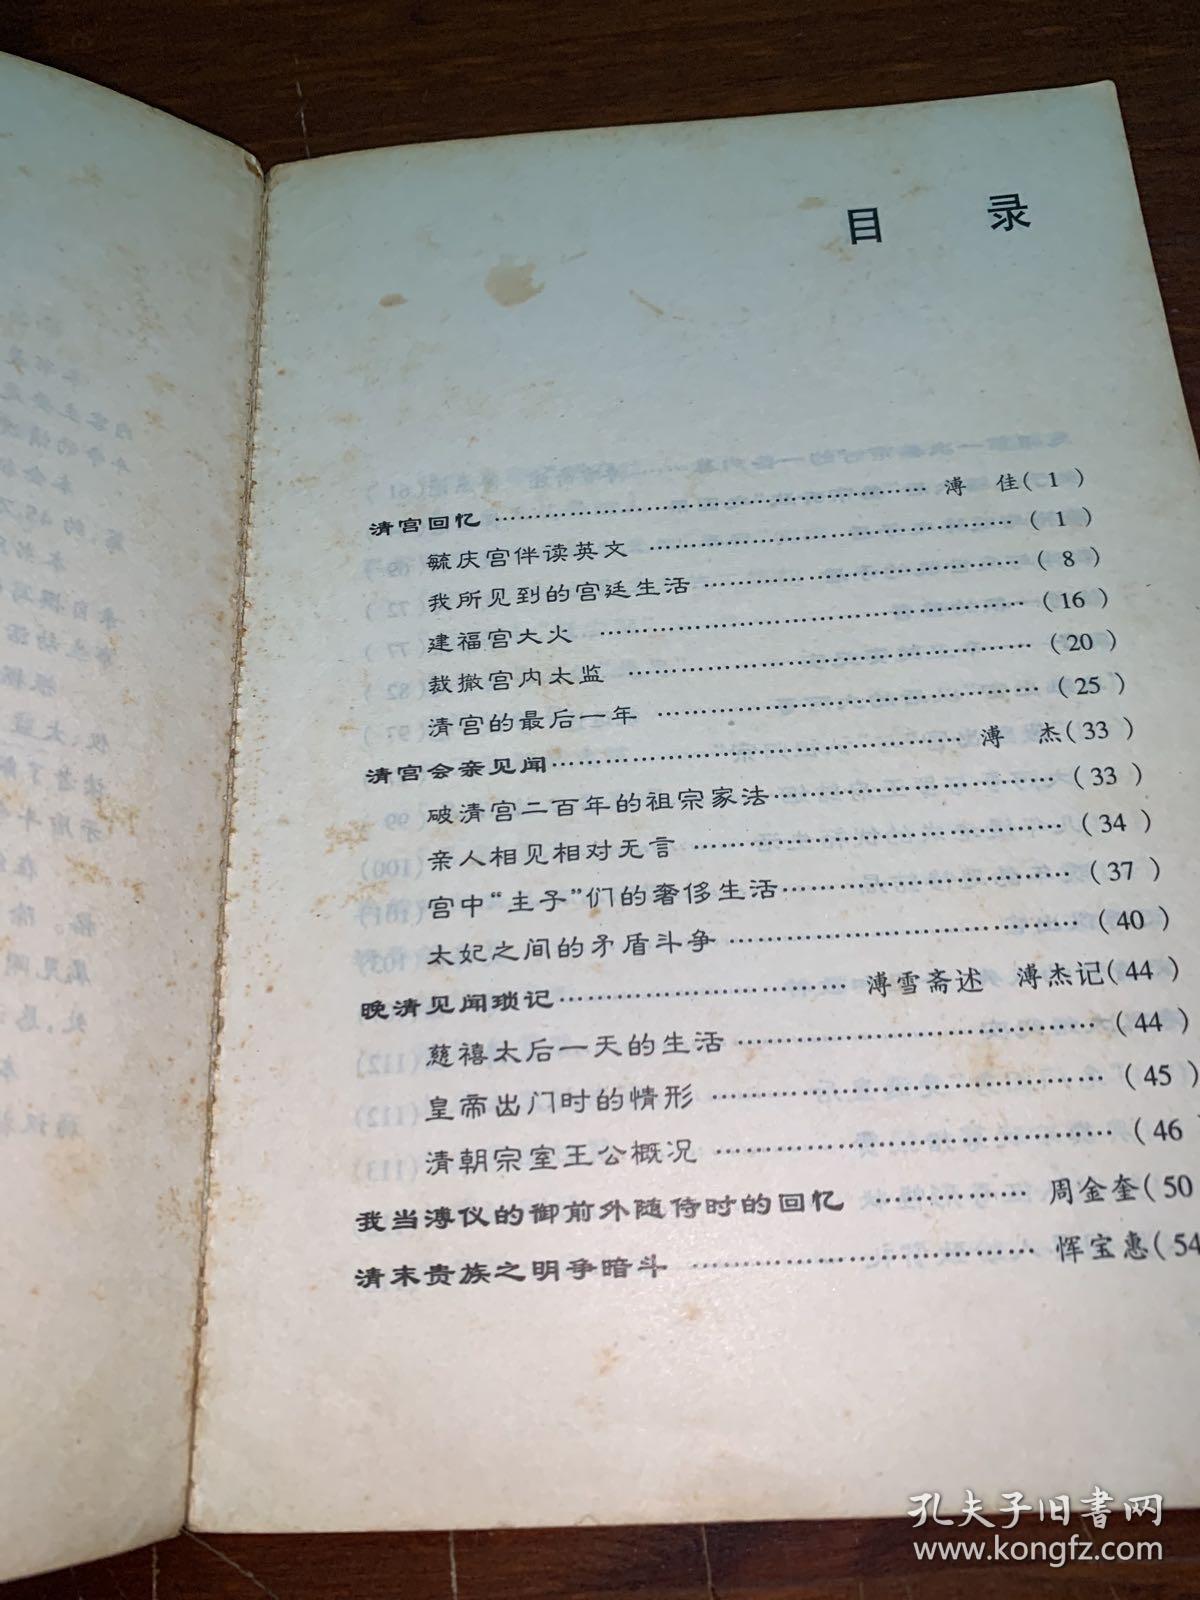 目　　录
清宫回忆 …………………………………… 溥　佳(1)
毓庆宫伴读英文 …………………………………(1)
我所见到的宫廷生活 ……………………………(8)
建福宫大火 ………………………………………(16)
裁撤宫内太监 ……………………………………(20)
清宫的最后一年 …………………………………(25)
清宫会亲见闻…………………………………… 溥　杰(33)
破清宫二百年的祖宗家法………………………(33)
亲人相见相对无言 ………………………………(34)
宫中“主子”们的奢侈生活………………………(37)
太妃之间的矛盾斗争 ……………………………(40)
晚清见闻琐记………………………… 溥雪斋述　溥杰记(44)
慈禧太后一天的生活 ……………………………(44)
皇帝出门时的情形 ………………………………(45)
清朝宗室王公概况 ………………………………(46
我当溥仪的御前外随侍时的回忆 …………… 周金奎(50
清末贵族之明争暗斗 ……………………………… 恽宝惠(54
孔夫子旧书网
www.kongfz.com